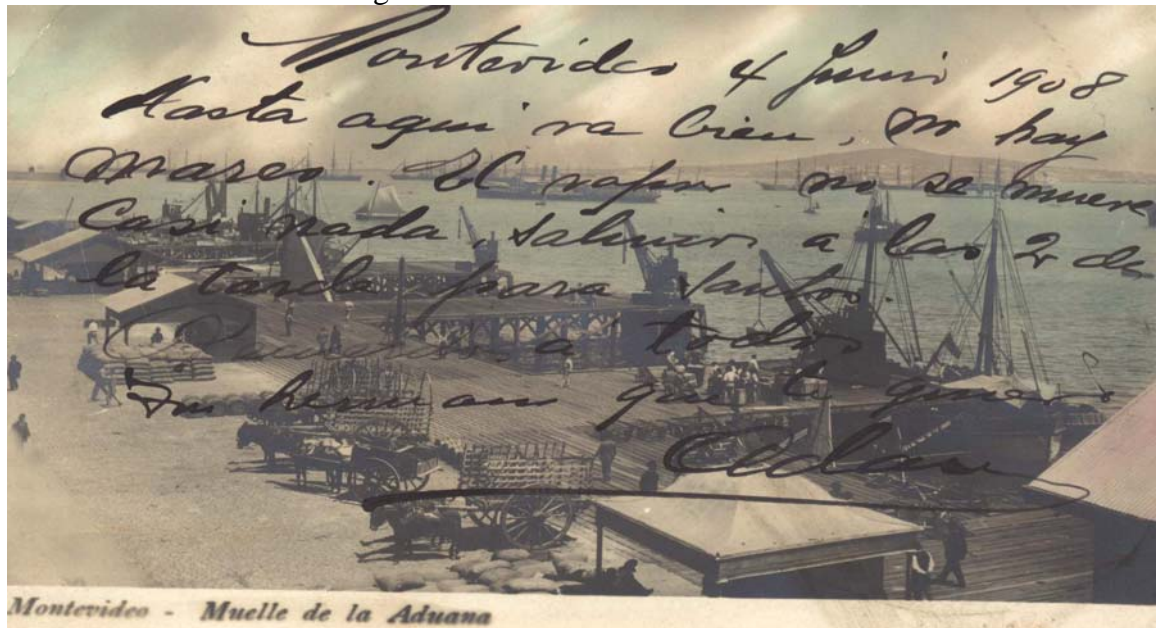 Montevideo 4 Junio 1908
Hasta aqui va bien, no hay
mareo. El vapor no se mueve
casi nada, salimos a las 2 de
la tarde para Santos.
a todos
Tu hermano que te quiere
Montevideo - Muelle de la Aduana